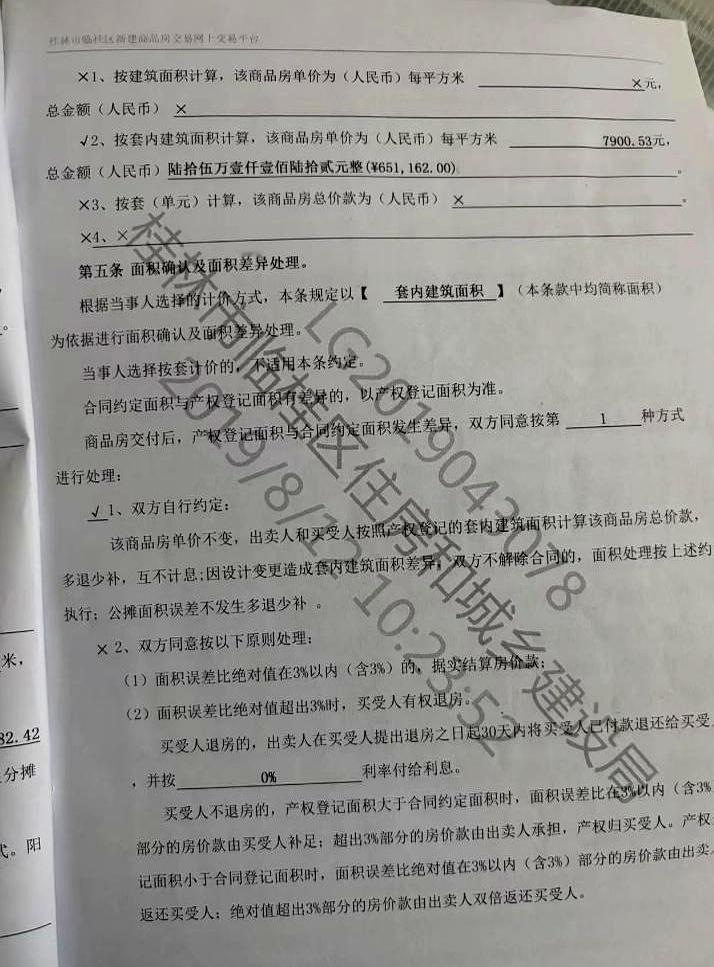 桂林市临桂区新建商品房交易网上交易平台
×1、按建筑面积计算，该商品房单价为（人民币）每平方米 ×元，
总金额（人民币） ×
√2、按套内建筑面积计算，该商品房单价为（人民币）每平方米 7900.53元，
总金额（人民币）陆拾伍万壹仟壹佰陆拾贰元整(¥651,162.00)。
×3、按套（单元）计算，该商品房总价款为（人民币） ×。
×4、×
第五条 面积确认及面积差异处理。
根据当事人选择的计价方式，本条规定以【 套内建筑面积 】（本条款中均简称面积）
为依据进行面积确认及面积差异处理。
当事人选择按套计价的，不适用本条约定。
合同约定面积与产权登记面积有差异的，以产权登记面积为准。
商品房交付后，产权登记面积与合同约定面积发生差异，双方同意按第 1 种方式
进行处理：
√1、双方自行约定：
该商品房单价不变，出卖人和买受人按照产权登记的套内建筑面积计算该商品房总价款，
多退少补，互不计息;因设计变更造成套内建筑面积差异，双方不解除合同的，面积处理按上述约
执行；公摊面积误差不发生多退少补 。
× 2、双方同意按以下原则处理：
（1）面积误差比绝对值在3%以内（含3%）的，据实结算房价款；
（2）面积误差比绝对值超出3%时，买受人有权退房。
买受人退房的，出卖人在买受人提出退房之日起30天内将买受人已付款退还给买受
，并按 0% 利率付给利息。
买受人不退房的，产权登记面积大于合同约定面积时，面积误差比在3%以内（含3%
部分的房价款由买受人补足；超出3%部分的房价款由出卖人承担，产权归买受人。产权
记面积小于合同登记面积时，面积误差比绝对值在3%以内（含3%）部分的房价款由出卖
返还买受人；绝对值超出3%部分的房价款由出卖人双倍返还买受人。
米，
82.42
分摊
阳
LG2019043078
桂林市临桂区住房和城乡建设局
2019/8/12 10:23:52